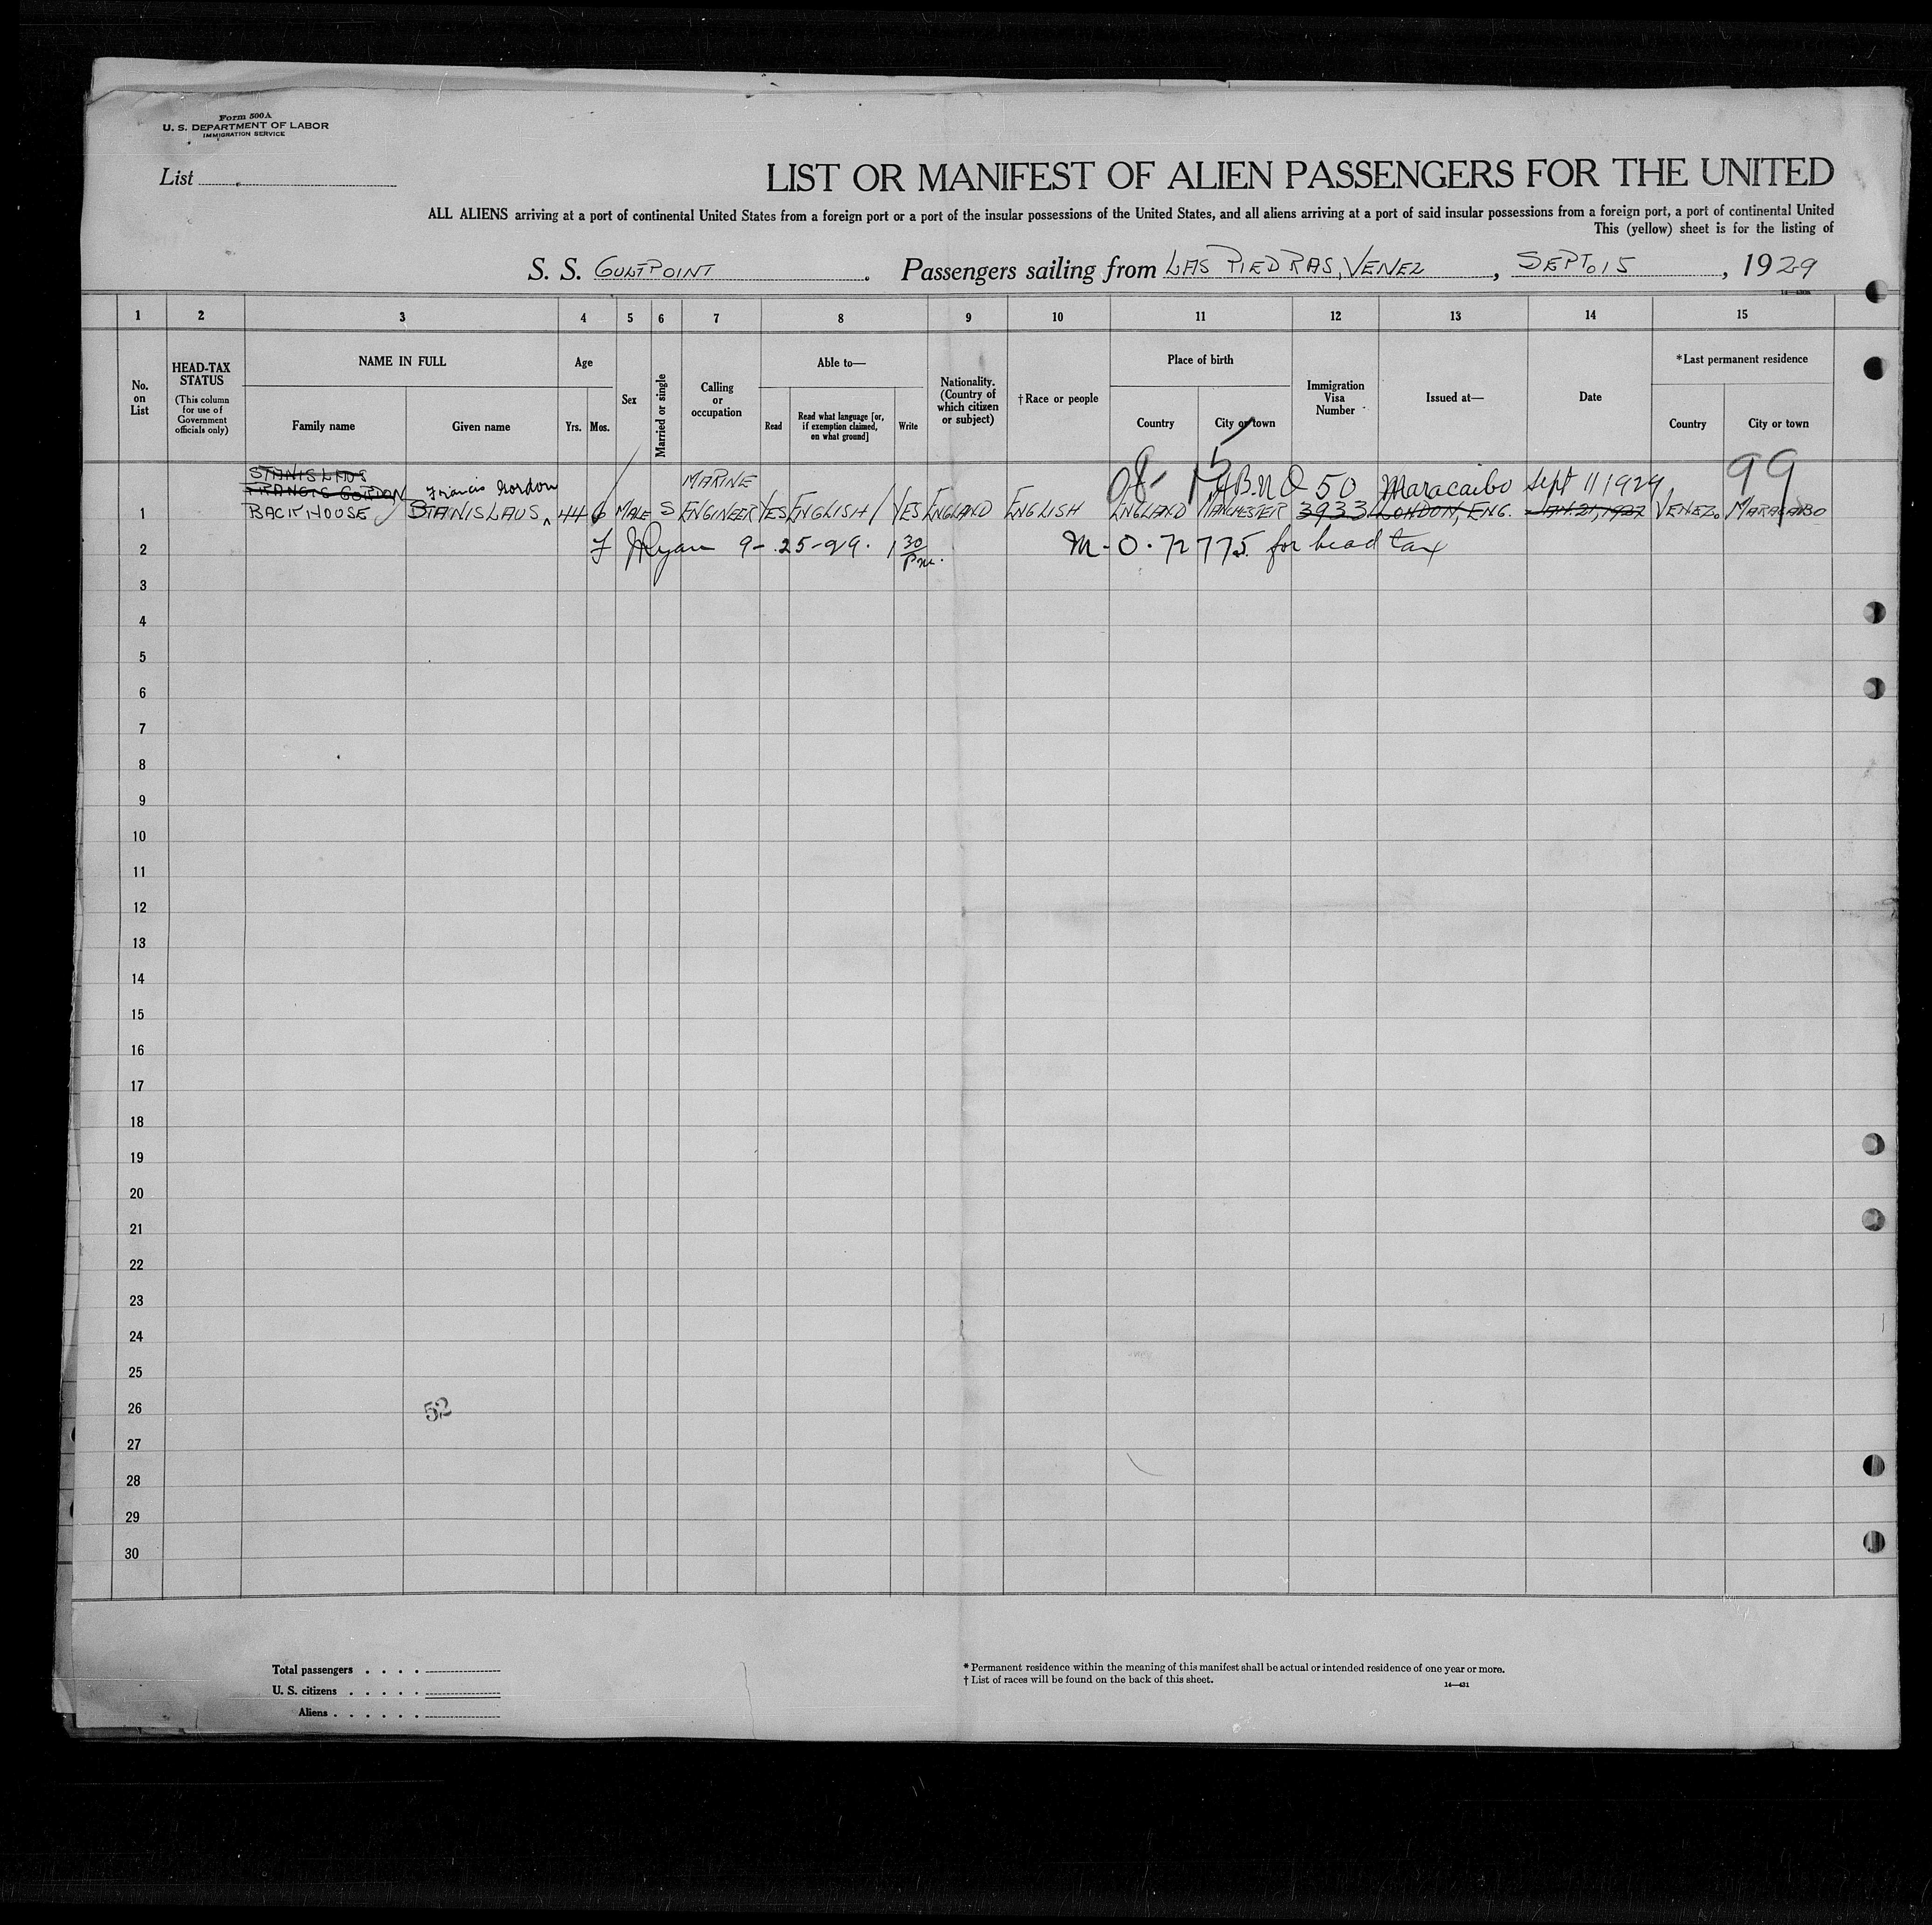 Form 500A
U. S. DEPARTMENT OF LABOR
IMMIGRATION SERVICE
List
LIST OR MANIFEST OF ALIEN PASSENGERS FOR THE UNITED
ALL ALIENS arriving at a port of continental United States from a foreign port or a port of the insular possessions of the United States, and all aliens arriving at a port of said insular possessions from a foreign port, a port of continental United
This (yellow) sheet is for the listing of
S. S. GULFPOINT. Passengers sailing from LAS PIEDRAS, VENEZ, SEPT. 15, 1929
14—430a
1 2 3 4 5 6 7 8 9 10 11 12 13 14 15
No. on List
HEAD-TAX STATUS
(This column for use of Government officials only)
NAME IN FULL
Family name
Given name
Age
Yrs.
Mos.
Sex
Married or single
Calling or occupation
Able to—
Read
Read what language [or, if exemption claimed, on what ground]
Write
Nationality. (Country of which citizen or subject)
† Race or people
Place of birth
Country
City or town
Immigration Visa Number
Issued at—
Date
* Last permanent residence
Country
City or town
STANISLAUS
FRANCIS GORDON Francis Gordon MARINE 50 Maracaibo Sept 11 1929 99
1 BACKHOUSE STANISLAUS 44 6 MALE S ENGINEER YES ENGLISH YES ENGLAND ENGLISH ENGLAND MANCHESTER 3933 LONDON, ENG. JAN. 21, 1927 VENEZ. MARACAIBO
2 Ryan 9-25-29. 1 30 Pm. M.O. 72775 for head tax
3
4
5
6
7
8
9
10
11
12
13
14
15
16
17
18
19
20
21
22
23
24
25
26
52
27
28
29
30
Total passengers
U. S. citizens
Aliens
* Permanent residence within the meaning of this manifest shall be actual or intended residence of one year or more.
† List of races will be found on the back of this sheet.
14—431